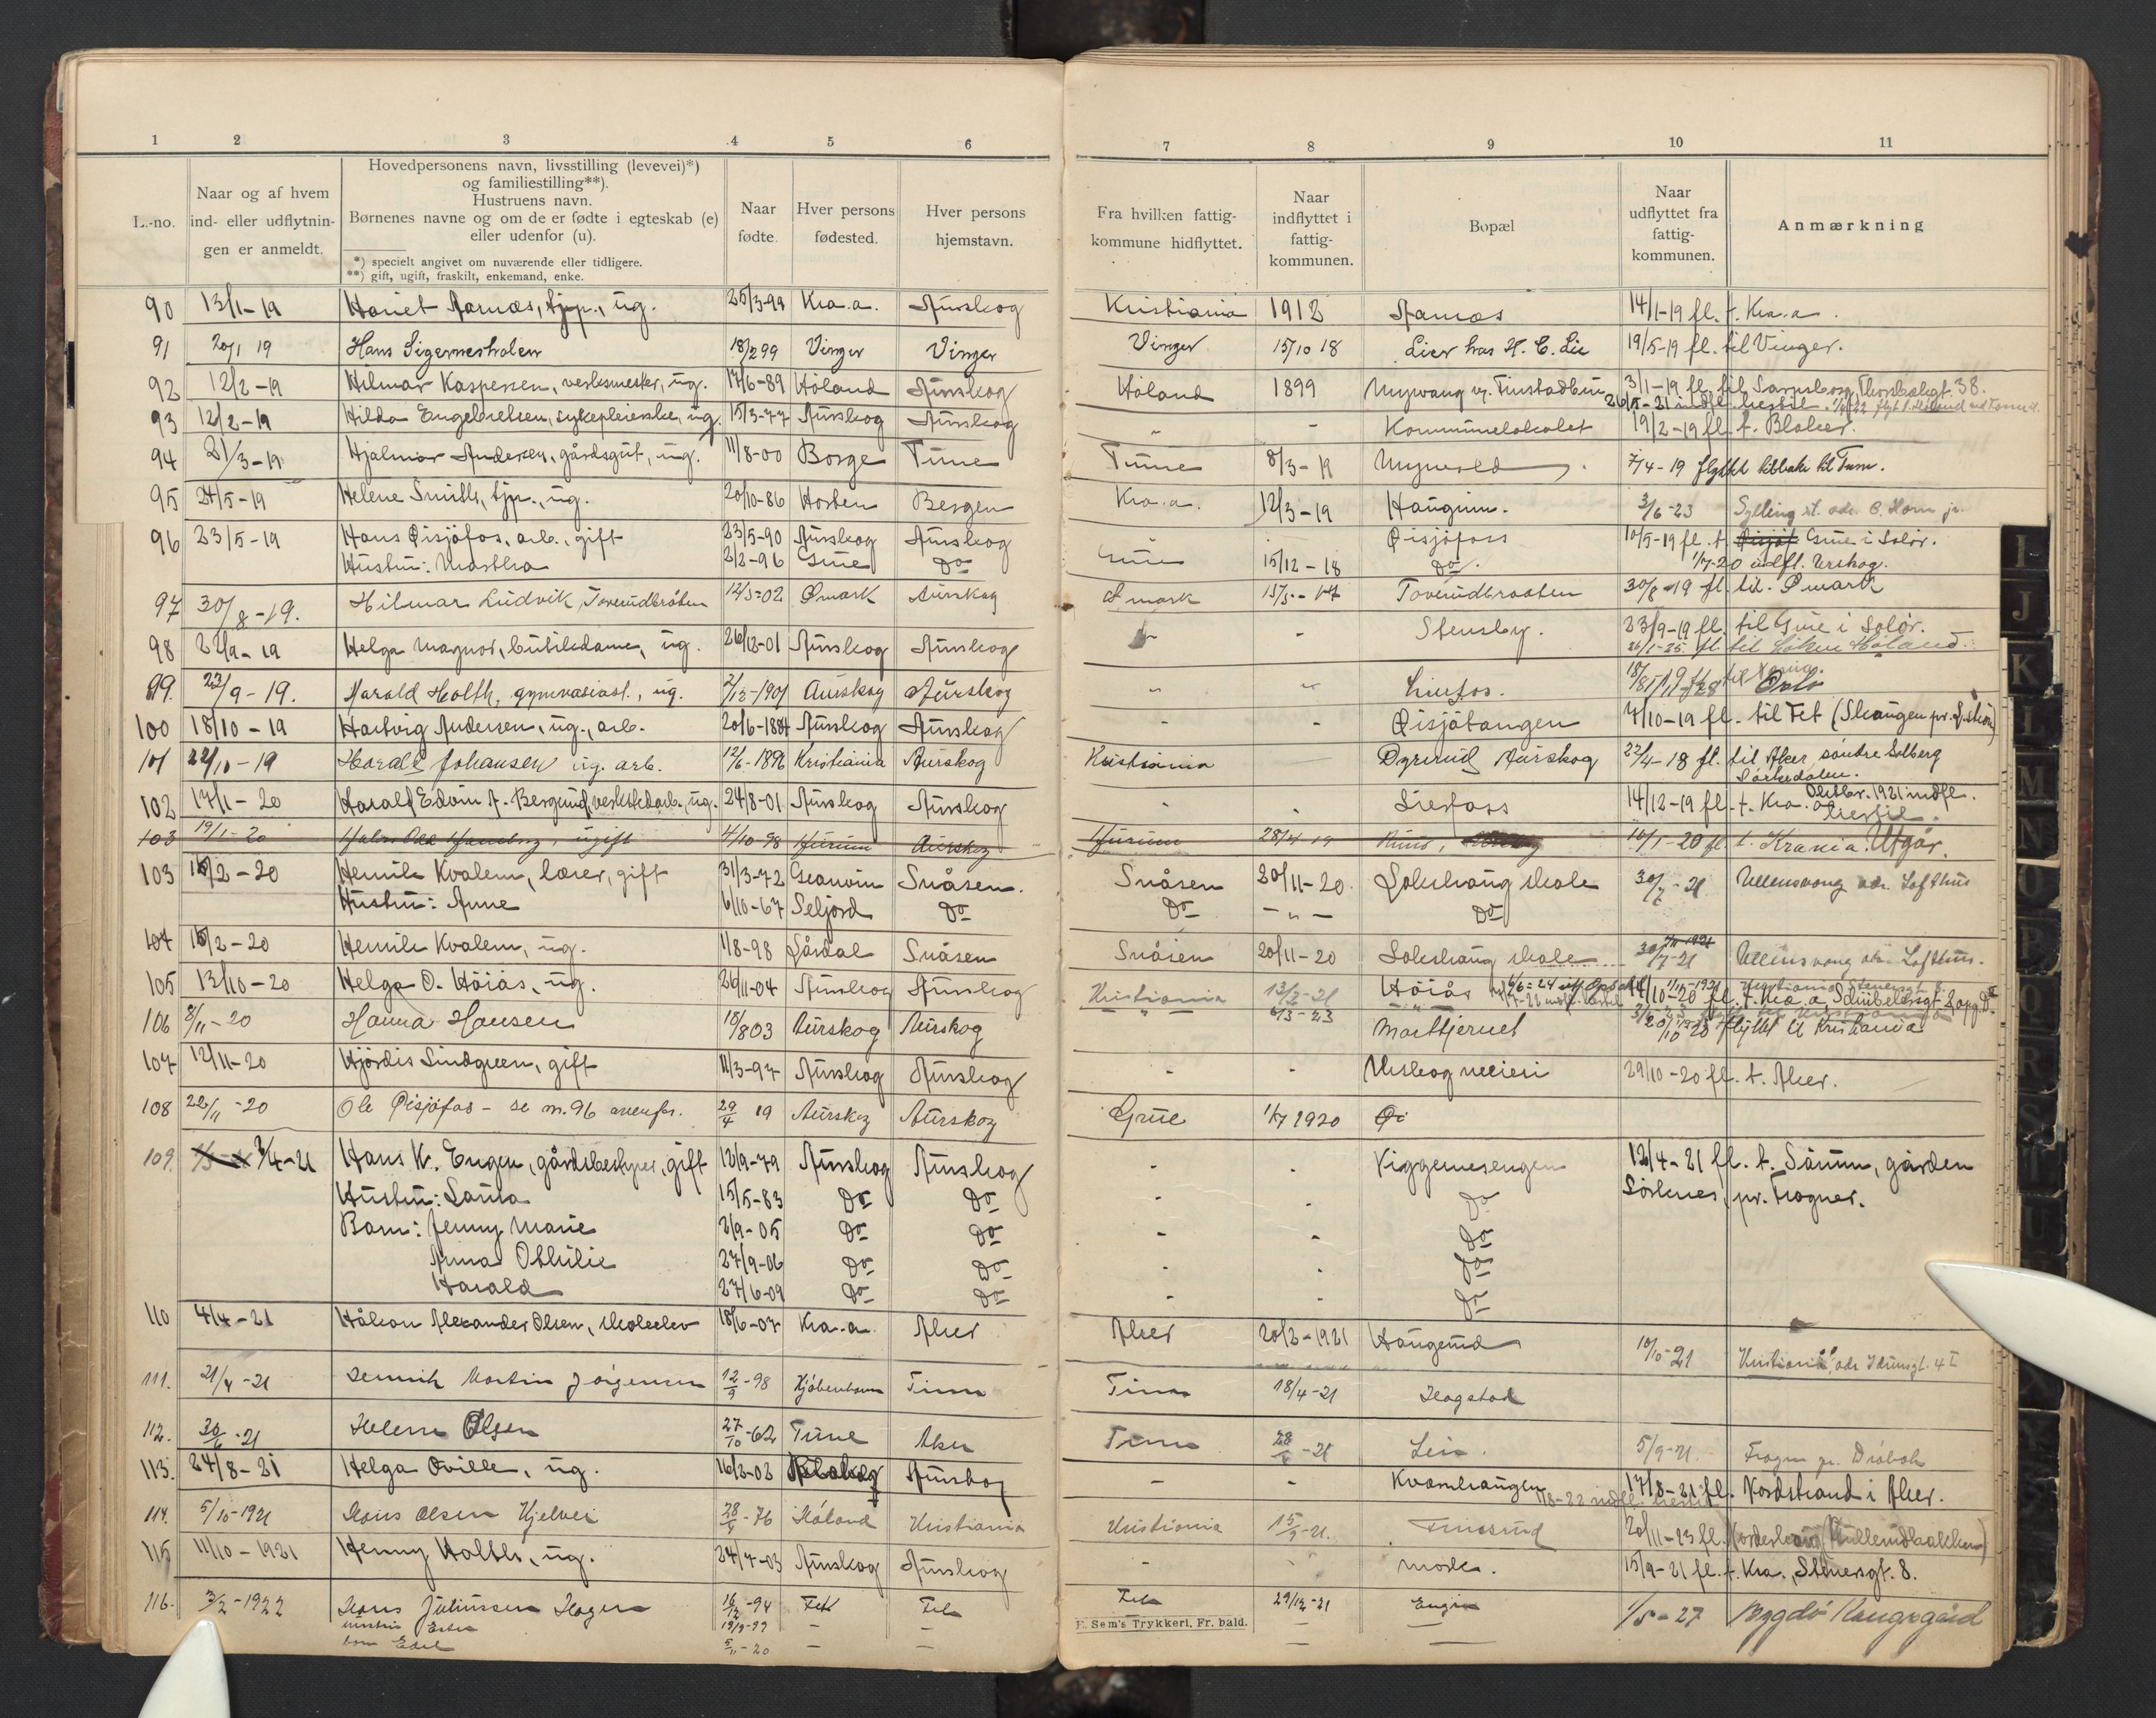 1 2 3 4 5 6 7 8 9 10 11
L.-no.
Naar og af hvem
ind- eller udflytnin-
gen er anmeldt.
Hovedpersonens navn, livsstilling (levevei)*)
og familiestilling**).
Hustruens navn.
Børnenes navne og om de er fødte i egteskab (e)
eller udenfor (u).
*) specielt angivet om nuværende eller tidligere.
**) gift, ugift, fraskilt, enkemand, enke.
Naar
fødte.
Hver persons
fødested.
Hver persons
hjemstavn.
Fra hvilken fattig-
kommune hidflyttet.
Naar
indflyttet i
fattig-
kommunen.
Bopæl
Naar
udflyttet fra
fattig-
kommunen.
Anmærkning
90 13/1-19 Hariet Aarnæs, tjp., ug. 25/3-99 Kra.a. Aurskog Kristiania 1912 Aarnæs 14/1-19 fl. t. Kra.a.
91 20/1 19 Hans Sigernesholen 18/2 99 Vinger Vinger Vinger 15/10 18 Lier hos H. C. Lie 19/5-19 fl. til Vinger.
92 12/2-19 Hilmar Kaspersen, verksmester, ug. 17/6-89 Høland Aurskog Høland 1899 Nyvang v. Finstadbru 3/1-19 fl. til Sarpsborg, 38.
26/5-21 indfl. hertil.
93 12/2-19 Hilda Engebretsen, sykepleierske, ug. 15/3-77 Aurskog Aurskog " - Kommunelokalet 19/2-19 fl. t. Blaker.
94 21/3-19 Hjalmar Andersen, gårdsgut, ug. 11/8-00 Borge Tune Tune 8/3-19 Mynvold 7/4-19 flyttet tilbake til Tune.
95 24/5-19 Helene Smith, tjp., ug. 20/10-86 Horten Bergen Kra.a. 12/3-19 Haugrim. 3/6-23 Sylling st. adr. C. Horn jr.
96 23/5-19 Hans Øisjøfos, arb., gift 23/5-90 Aurskog Aurskog Øisjøfoss 10/5-19 fl. t. Grue i Solør.
Hustru: Martha 2/2-96 Grue Do Grue 15/12-18 Do. 1/7-20 indfl. Urskog.
97 30/8-19. Hilmar Ludvik Toverudbråten 12/5-02 Ømark Aurskog Ømark 15/5-17 Toverudbraaten 30/8-19 fl. til Ømark
98 22/9-19 Helga Magnor, butikdame, ug. 26/12-01 Aurskog Aurskog - Stensby. 23/9-19 fl. til Grue i Solør.
26/1-25 fl. til Løken Høland.
99. 23/9-19. Harald Holth, gymnasiast., ug. 2/12-1901 Aurskog Aurskog " " Linfos. til Oslo
100 18/10-19 Hartvig Andersen, ug., arb. 20/6-1884 Aurskog Aurskog - - Øisjøtangen 7/10-19 fl. til Fet
101 22/10-19 Harald Johansen ug. arb. 12/6-1896 Kristiania Aurskog Kristiania - Dyrerud Aurskog 22/4-18 fl. til Aker søndre Solberg
Sørkedalen.
102 17/1-20 Harald Edvin A. Bergund, verkstedarb., ug. 24/8-01 Aurskog Aurskog - - Lierfoss 14/12-19 fl. t. Kra. Oktbr. 1921 indfl.
hertil.
103 19/1-20 ugift 4/10-98 Hurum Aurskog Hurum 28/4-19 10/1-20 fl. t. Krania. Utgår.
103 15/2-20 Henrik Kvalem, lærer, gift 31/3-72 Granvin Snåsen. Snåsen 20/11-20. Lokshaug skole 30/7-21 Ullensvang adr. Lofthus
Hustru: Anne 6/10-67 Seljord Do Do - " - Do
104 15/2-20 Henrik Kvalem, ug. 1/8-98 Lårdal Snåsen Snåsen 20/11-20 Lokshaug skole 30/7-21 Ullensvang adr. Lofthus.
105 13/10-20 Helga O. Høiås, ug. 26/11-04 Aurskog Aurskog Kristiania 13/2-21 Høiås 14/10-20 fl. t. Kra.a, Schübelersgt 2 opg. D
6/3-23
106 8/11-20 Hanna Hansen 18/8 03 Aurskog Aurskog Morttjernet 20/10-20 flyttet til Kristiania
107 12/11-20 Hjørdis Lindgreen, gift 11/3-97 Aurskog Aurskog - - Urskog meieri 29/10-20 fl. t. Aker.
108 22/11-20 Ole Øisjøfos - se nr. 96 ovenfor. 29/4 19 Aurskog Aurskog Grue 1/7 1920 Øi
109. 2/4-21 Hans K. Engen, gårdsbestyrer, gift 12/9-79 Aurskog Aurskog - - Viggemesengen 12/4-21 fl. t. Sørum, gården
Hustru: Laura 15/5-83 Do Do - Do Sørlenes, pr. Frogner.
Barn: Jenny Marie 2/9-05 Do Do - - Do
Anna Othilie 27/9-06 Do Do - - Do
Harald 27/6-09 Do Do - - Do
110 4/4-21 Håkon Alexander Olsen, skoleelev 18/6-07 Kra.a. Aker Aker 20/2-1921 Haugerud 10/10-21 Kristiania, adr. Idunsgt. 4 I
111. 21/4-21 Henrik Martin Jørgensen 12/9-98 Kjøbenhavn Tune Tune 18/4-21 Hogstad
112. 30/6-21 Helene Olsen 27/10-62 Tune Aker Tune 28/6-21 Lein. 5/9-21. Frogn pr. Drøbak
113. 24/8-21 Helga Oville, ug. 16/2-02 Aurskog - - Kvernhaugen 17/8-21 fl. Nordstrand i Aker.
1/8-22 indfl. hertil
114. 5/10-1921 Hans Olsen Hjelvei 28/4-76 Høland Kristiania Kristiania 15/9-21. Finsrud 20/11-23 fl. Nordenhaug
115 11/10-1921 Henny Holth, ug. 24/7-03 Aurskog Aurskog - - Mork. 15/9-21 fl. t. Kra., Stenersgt. 8.
116. 3/2-1922 Hans Juliussen Hagen 16/12-94 Fet Fet Fet 29/12-21 Engen 1/5-27 Bygdø Kongsgård
hustru Ester - -
barn Edel 5/11-20 - -
E. Sem's Trykkeri, Fr. hald.
I
J
K
L
M
N
O
P
Q
R
S
T
U